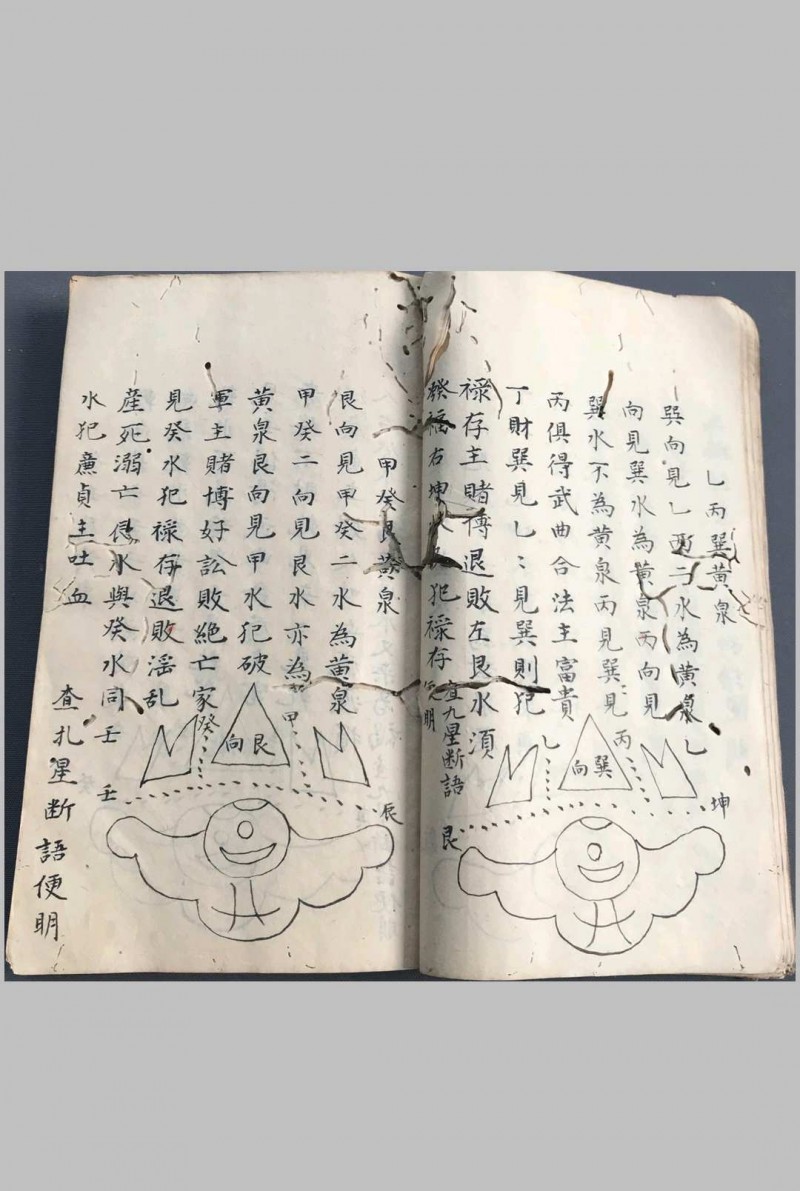 乚丙巽黃泉
巽向見乚丙二水為黃泉乚
向見巽水為黃泉丙向見
巽水不為黃泉丙見巽見
丙俱得武曲合法主富貴
丁財巽見乚：見巽則犯
祿存主賭博退敗左艮水須
發福右坤水 犯祿存
查九星断語
便明
乚
丙
巽向
坤
艮
甲癸艮黃泉
艮向見甲癸二水為黃泉
甲癸二向見艮水亦為
黃泉艮向見甲水犯破
軍主賭博好訟敗絕亡家
見癸水犯祿存退敗淫乱
產死溺亡艮水與癸水同壬
水犯廉貞主吐血
癸
甲
艮向
辰
壬
查扎星断語便明